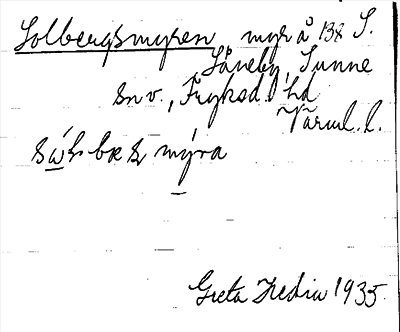 Solbergsmyren myr å 138 S.
Såneby, Sunne
sn v., Fryksd. hd
Värml. l.
myra
Greta Hedin 1935.